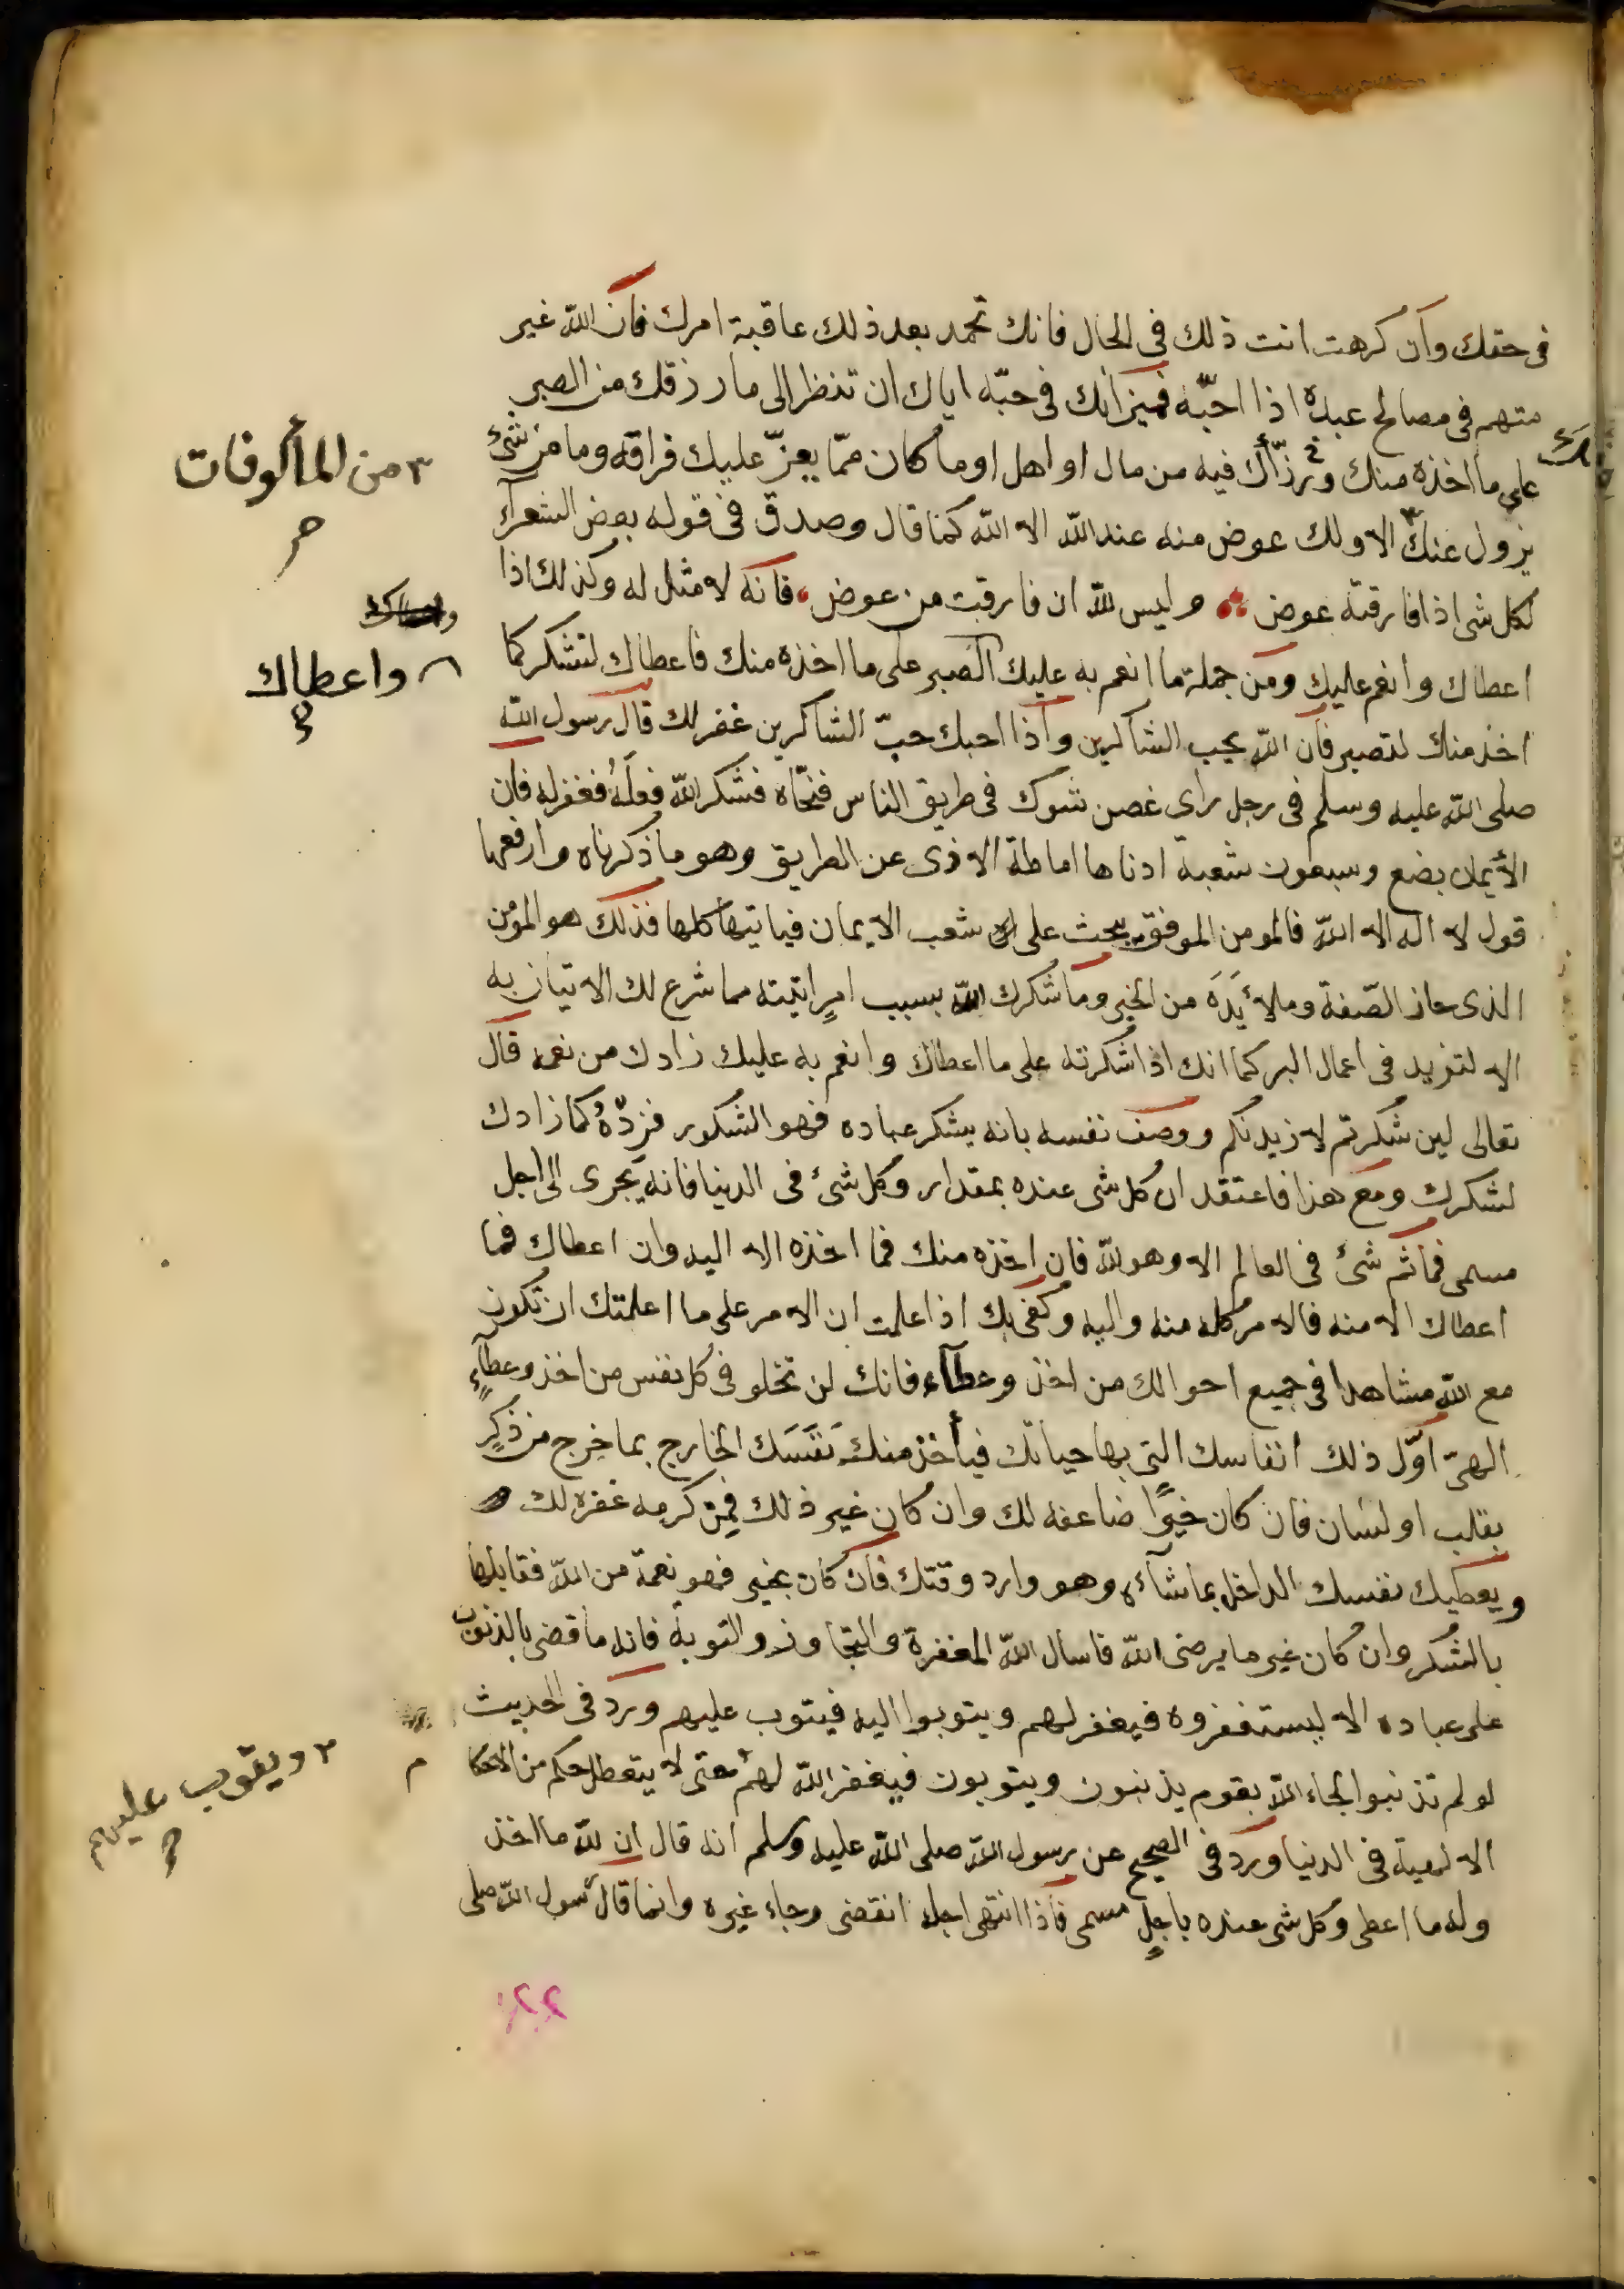 فى حقك وان كرهت انت ذلك فى الحال فانك تحمد بعد ذلك عاقبة امرك فان الله غير
متهم فى مصالح عبده اذا احبّه فميزانك فى حبّه اياك ان تنظر الى ما رزقك من الصبر
على ما اخذه منك ورزّأك فيه من مال او اهل او ما كان ممّا يعزّ عليك فراقه وما من شئ
يزول عنك الا ولك عوض منه عند الله الا الله كما قال وصدق فى قوله بعض الشعرآء
لكل شى اذا فارقته عوض وليس لله ان فارقت من عوض فانه لا مثل له وكذلك اذا
اعطاك وانعم عليك ومن جملة ما انعم به عليك الصبر على ما اخذه منك فاعطاك لتشكر كما
اخذ منك لتصبر فان الله يحب الشاكرين واذا احبك حبّ الشاكرين غفر لك قال رسول الله
صلى الله عليه وسلم فى رجل راى غصن شوك فى طريق الناس فنحّاه فشكر الله فعلَهُ فغفر له فان
الأيمان بضع وسبعون شعبة ادناها اماطة الاذى عن الطريق وهو ما ذكرناه وارفعها
قول لا اله الا الله فالمومن الموفق يبحث على شعب الايمان فياتيها كلها فذلك هو المؤمن
الذى حاز الصّفة وملأ يَدَه من الخير وما شكرك الله بسبب امرٍ اتيته مما شرع لك الاتيان به
الا لتزيد فى اعمال البر كما انك اذا شكرته على ما اعطاك وانعم به عليك زادك من نعمه قال
تعالى لين شكرتم لازيدنكم ووصف نفسه بانه يشكر عباده فهو الشكور فزِدْهُ كما زادك
لشكرك ومع هذا فاعتقد ان كل شى عنده بمقدار وكل شئ فى الدنيا فانه يجرى الى اجل
مسمى فما ثم شئ فى العالم الا وهو لله فان اخذه منك فما اخذه الا اليه وان اعطاك فما
اعطاك الا منه فالامر كله منه واليه وكفى بك اذا علمت ان الامر على ما اعلمتك ان تكون
مع الله مشاهدا فى جميع احوالك من اخذ وعطآء فانك لن تخلو فى كل نفس من اخذ وعطآءٍ
الهىّ اوّل ذلك انفاسك التى بها حياتك فيأخذ منك نَفَسَك الخارج بما خرج من ذكرٍ
بقلب او لسان فان كان خيرًا ضاعفه لك وان كان غير ذلك فمِن كرمه غفره لك
ويعطيك نفسك الداخل بما شآء وهو وارد وقتك فان كان بخير فهو نعمة من الله فقابلها
بالشكر وان كان غير ما يرضى الله فاسال الله المغفرة والتجاوز والتوبة فانه ما قضى بالذنوب
على عباده الا ليستغفروه فيغفر لهم ويتوبوا اليه فيتوب عليهم ورد فى الحديث
لو لم تذنبوا لجاء الله بقوم يذنبون ويتوبون فيغفر الله لهم حتى لا يتعطل حكم من الاحكام
الالهية فى الدنيا ورد فى الصحيح عن رسول الله صلى الله عليه وسلم انه قال ان لله ما اخذ
وله ما اعطى وكل شى عنده باجلٍ مسمى فاذا انتهى اجله انقضى وجاء غيره وانما قال رسول الله صلى
٣ من المألوفات
واعطاك
ويتوب عليهم